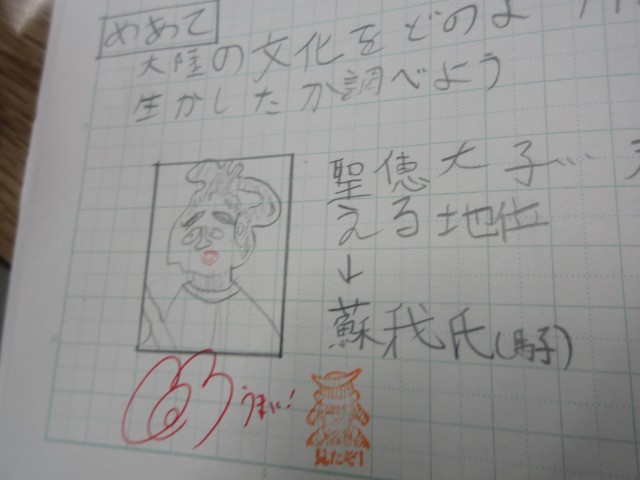 めあて
大陸の文化をどのよ
生かしたか調べよう
聖徳太子…
える地位
↓
蘇我氏(馬子)
うまい!
見たぞ!